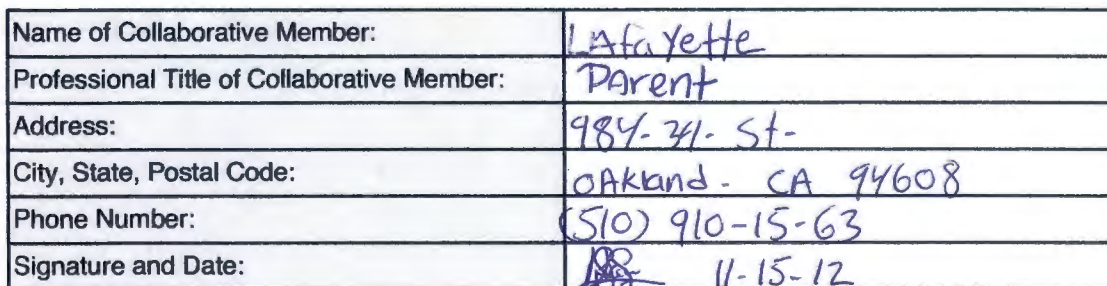 Name of Collaborative Member: LAfayette
Professional Title of Collaborative Member: PArent
Address: 984- 41- St-
City, State, Postal Code: OAkland - CA 94608
Phone Number: (510) 910-15-63
Signature and Date: 11-15-12